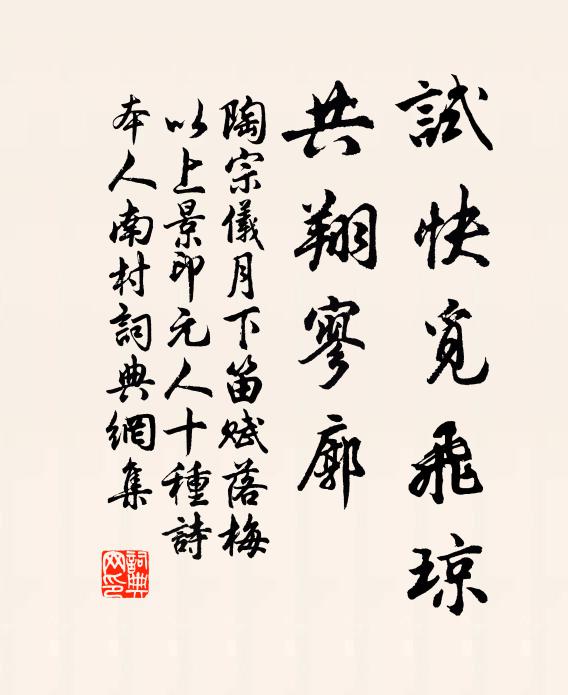 試快覓飛琼
共翔寥廓
陶宗儀月下笛赋落梅
以上景印元人十種詩
本人南村詞典網集
詞典網印